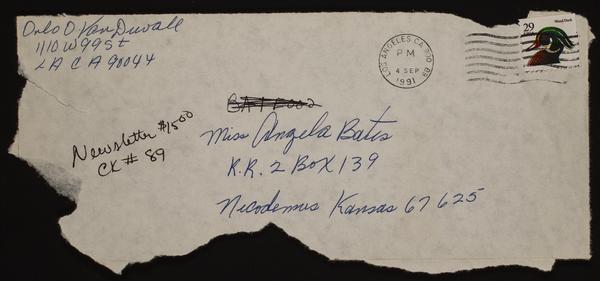 Orlo O Van Duvall
1110 W 99 St
LA CA 90044
LOS ANGELES CA
PM
4 SEP
1991
29
Wood Duck
Newsletter $15.00
CK # 89
Miss Angela Bates
R.R. 2 BOX 139
Nicodemus Kansas 67625